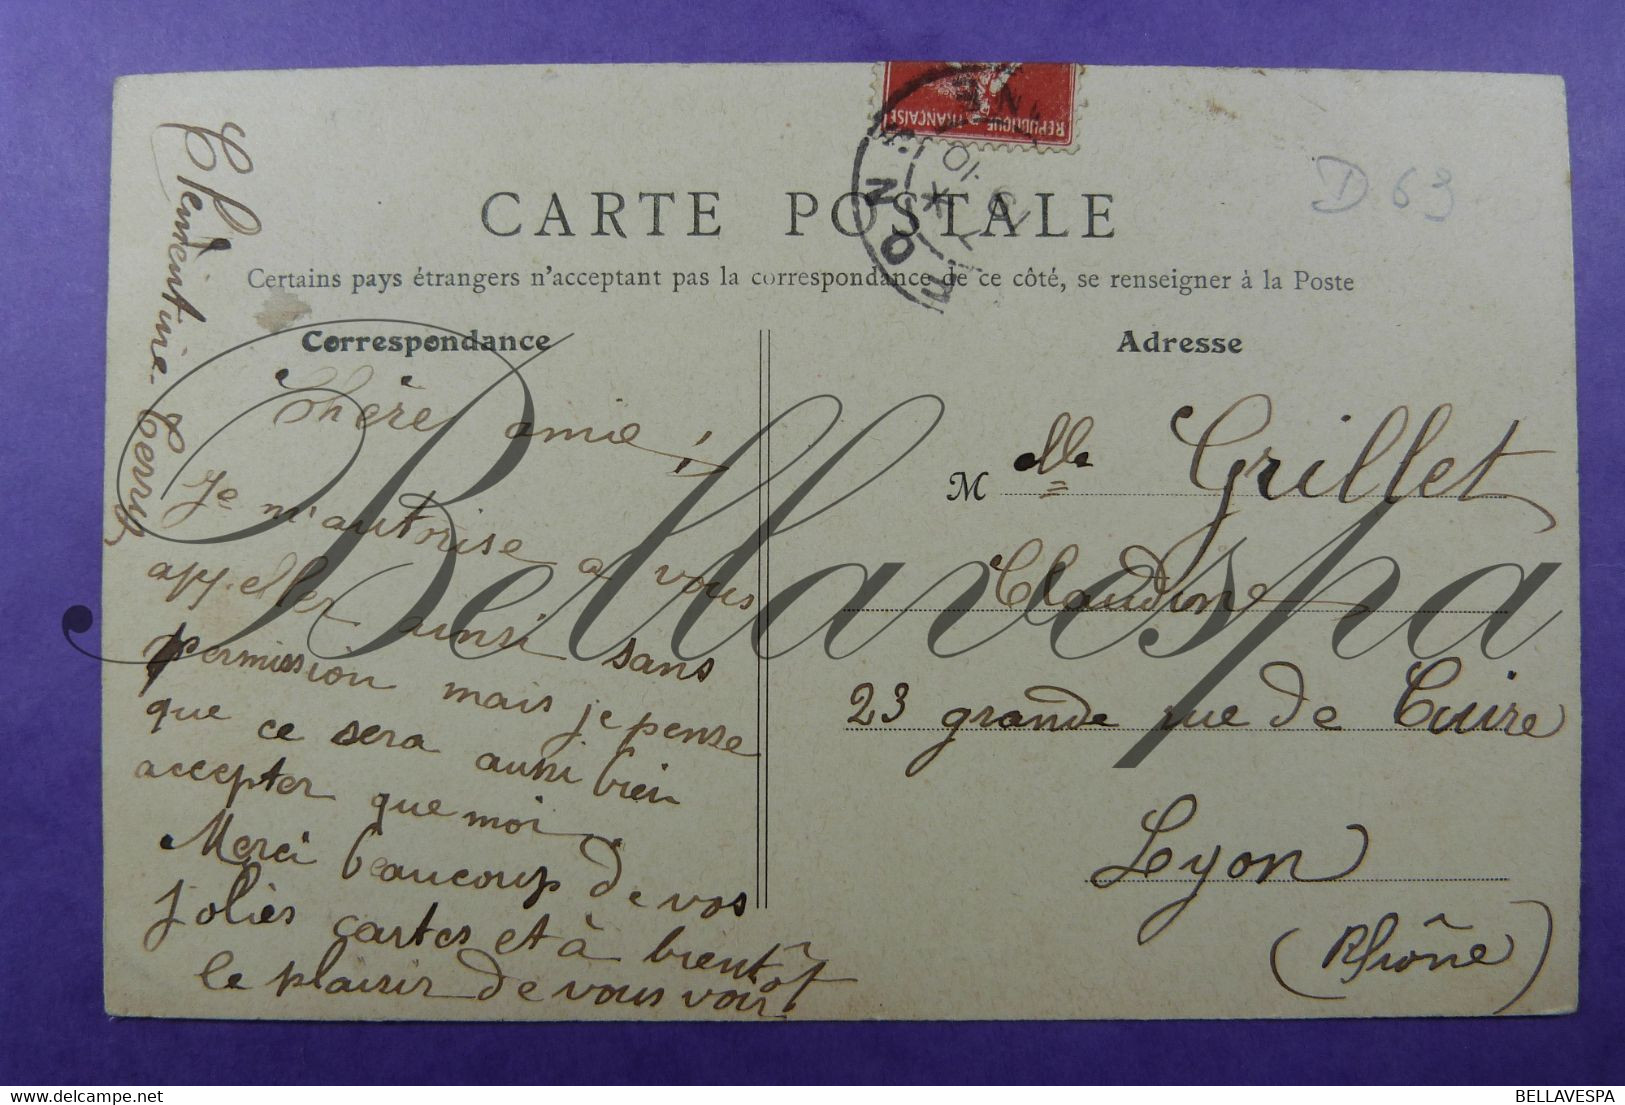 REPUBLIQUE FRANÇAISE
D 69
CARTE POSTALE
Certains pays étrangers n'acceptant pas la correspondance de ce côté, se renseigner à la Poste
Correspondance
Chère amie !
Je m'autorise a vous
appeller ainsi sans
permission mais je pense
que ce sera aussi bien
accepter que moi
Merci beaucoup de vos
jolies cartes et à bientôt
le plaisir de vous voir
Clémentine
Adresse
Mlle Grillet
Claudine
23 grande rue de Cuire
Lyon
(Rhône)
Bellavespa
BELLAVESPA